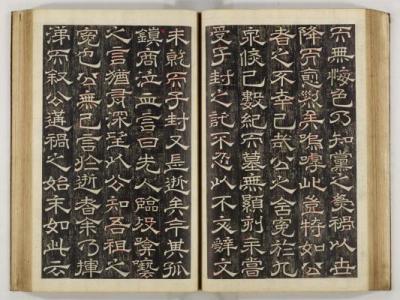 而無悔色乃知黨之爲禍以世
降而愈烈矣嗚呼此豈特如公
者之不幸已哉公之含冤於九
泉倐已數紀而墓無顯刻未嘗
受子封之託不忍以不文辭又
未乾而子封又長逝矣今其孤
鎮商泣血言曰先人臨歿囈
之言猶深望以公知吾祖之
冤也公無已言於逝者乎乃揮
涕而叙公遘禍之始末如此云